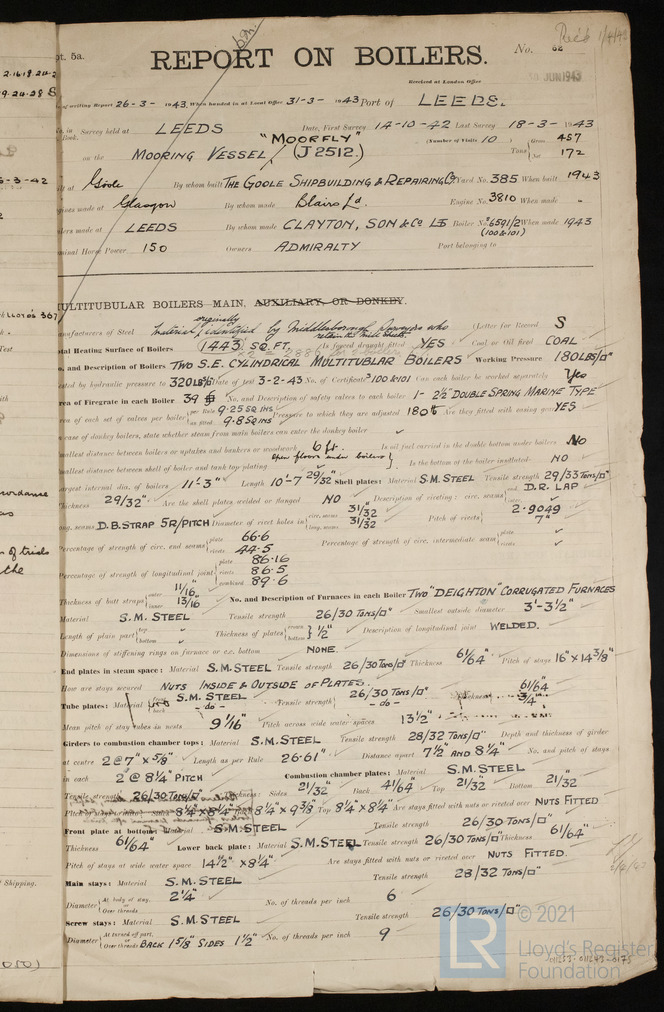 pt. 5a.
REPORT ON BOILERS.
No. 62
Rec'd 1/4/43
Received at London Office
JUN 1943
of writing Report 26-3-1943, When handed in at Local Office 31-3-1943 Port of LEEDS.
No. in Survey held at LEEDS Date, First Survey 14-10-42 Last Survey 18-3-1943
Book.
"MOORFLY" (Number of Visits 10) Gross 457
on the MOORING VESSEL (J2512.) Tons Net 172
Built at Goole By whom built THE GOOLE SHIPBUILDING & REPAIRING Co Yard No. 385 When built 1943
Engines made at Glasgow By whom made Blairs Ld. Engine No. 3810 When made "
Boilers made at LEEDS By whom made CLAYTON, SON & Co Ld Boiler No. 6591/2 When made 1943
(100 & 101)
Nominal Horse Power 150 Owners ADMIRALTY Port belonging to
MULTITUBULAR BOILERS MAIN, AUXILIARY, OR DONKEY.
Manufacturers of Steel Material originally identified by Middlesborough Surveyors who (Letter for Record S
Total Heating Surface of Boilers 1443 SQ. FT. Is forced draught fitted YES Coal or Oil fired COAL
No. and Description of Boilers TWO S.E. CYLINDRICAL MULTITUBLAR BOILERS Working Pressure 180 LBS/□"
Tested by hydraulic pressure to 320 LBS/□" Date of test 3-2-43 No. of Certificate 100 & 101 Can each boiler be worked separately Yes
Area of Firegrate in each Boiler 39 No. and Description of safety valves to each boiler 1- 2½" DOUBLE SPRING MARINE TYPE
Area of each set of valves per boiler per Rule 9.25 SQ INS as fitted 9.8 SQ INS Pressure to which they are adjusted 180 lb Are they fitted with easing gear YES
In case of donkey boilers, state whether steam from main boilers can enter the donkey boiler ✓
Smallest distance between boilers or uptakes and bunkers or woodwork 6 ft. Is oil fuel carried in the double bottom under boilers No
Smallest distance between shell of boiler and tank top plating open floors under boilers Is the bottom of the boiler insulated NO
Largest internal dia. of boilers 11'-3" Length 10'-7 29/32" Shell plates: Material S.M. STEEL Tensile strength 29/33 TONS/□"
Thickness 29/32" Are the shell plates welded or flanged NO Description of riveting: circ. seams D.R. LAP
long. seams D.B. STRAP 5R/PITCH Diameter of rivet holes in circ. seams 31/32 long. seams 31/32 Pitch of rivets 2.9049 7"
Percentage of strength of circ. end seams plate 66.6 rivets 44.5 Percentage of strength of circ. intermediate seam plate ✓ rivets ✓
Percentage of strength of longitudinal joint plate 86.16 rivets 86.5 combined 89.6
Thickness of butt straps outer 11/16" inner 13/16 No. and Description of Furnaces in each Boiler TWO "DEIGHTON" CORRUGATED FURNACES
Material S.M. STEEL Tensile strength 26/30 TONS/□" Smallest outside diameter 3'-3½"
Length of plain part top bottom Thickness of plates crown bottom ½" Description of longitudinal joint WELDED.
Dimensions of stiffening rings on furnace or c.c. bottom NONE.
End plates in steam space: Material S.M. STEEL Tensile strength 26/30 TONS/□" Thickness 61/64" Pitch of stays 16" X 14⅜"
How are stays secured NUTS INSIDE & OUTSIDE OF PLATES.
Tube plates: Material front S.M. STEEL back -do- Tensile strength 26/30 TONS/□" -do- Thickness 61/64 3/4"
Mean pitch of stay tubes in nests 9 1/16" Pitch across wide water spaces 13½"
Girders to combustion chamber tops: Material S.M. STEEL Tensile strength 28/32 TONS/□" Depth and thickness of girder
at centre 2@7" X ⅝" Length as per Rule 26.61" Distance apart 7½" AND 8¼" No. and pitch of stays
in each 2 @ 8¼" PITCH Combustion chamber plates: Material S.M. STEEL
Tensile strength 26/30 TONS/□" Thickness: Sides 21/32 Back 41/64" Top 21/32" Bottom 21/32"
8¼" X 8¼" 8¼" X 9⅜" 8¼" X 8¼" Are stays fitted with nuts or riveted over NUTS FITTED
Front plate at bottom: Material S.M. STEEL Tensile strength 26/30 TONS/□"
Thickness 61/64" Lower back plate: Material S.M. STEEL Tensile strength 26/30 TONS/□" Thickness 61/64"
Pitch of stays at wide water space 14½" X 8¼" Are stays fitted with nuts or riveted over NUTS FITTED
Main stays: Material S.M. STEEL Tensile strength 28/32 TONS/□"
Diameter At body of stay, or Over threads 2¼" No. of threads per inch 6
Screw stays: Material S.M. STEEL Tensile strength 26/30 TONS/□"
Diameter At turned off part, or Over threads BACK 1⅝" SIDES 1½" No. of threads per inch 9
© 2021
Lloyd's Register
Foundation
LR